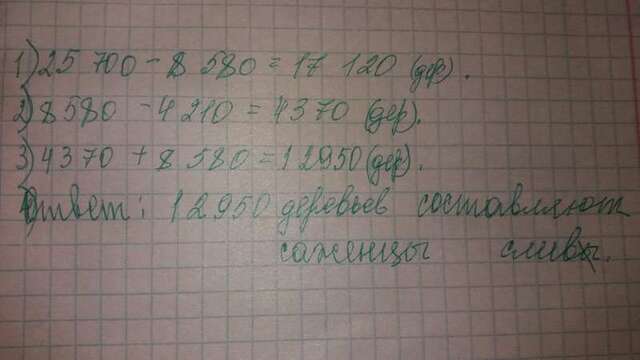 1) 25 700 - 8 580 = 17 120 (дер).
2) 8580 - 4210 = 4370 (дер).
3) 4370 + 8 580 = 12950 (дер).
Ответ: 12950 деревьев составляют
саженцы сливы.